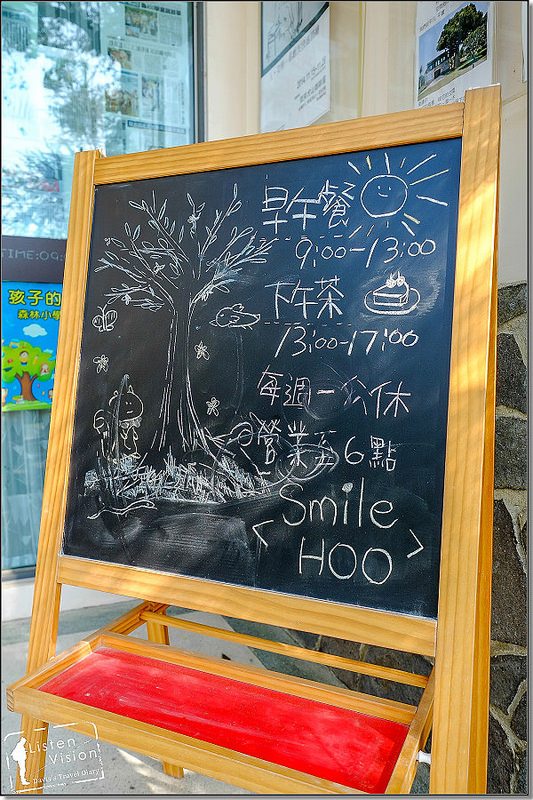 早午餐
9:00-13:00
下午茶
13:00-17:00
每週一公休
營業至6點
<Smile
HOO>
TIME:09:
孩子的
森林小學
Listen
Vision
Davis's Travel Diary